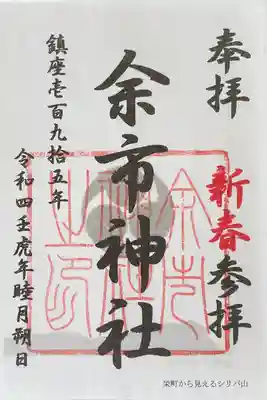 奉拝
新春参拝
余市神社
鎮座壱百九拾五年
令和四壬虎年睦月朔日
余市神社之印
栄町から見えるシリパ山